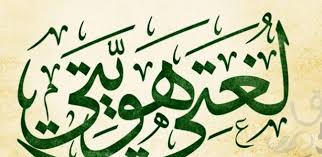 لُغَتِي هَوِيَّتِي